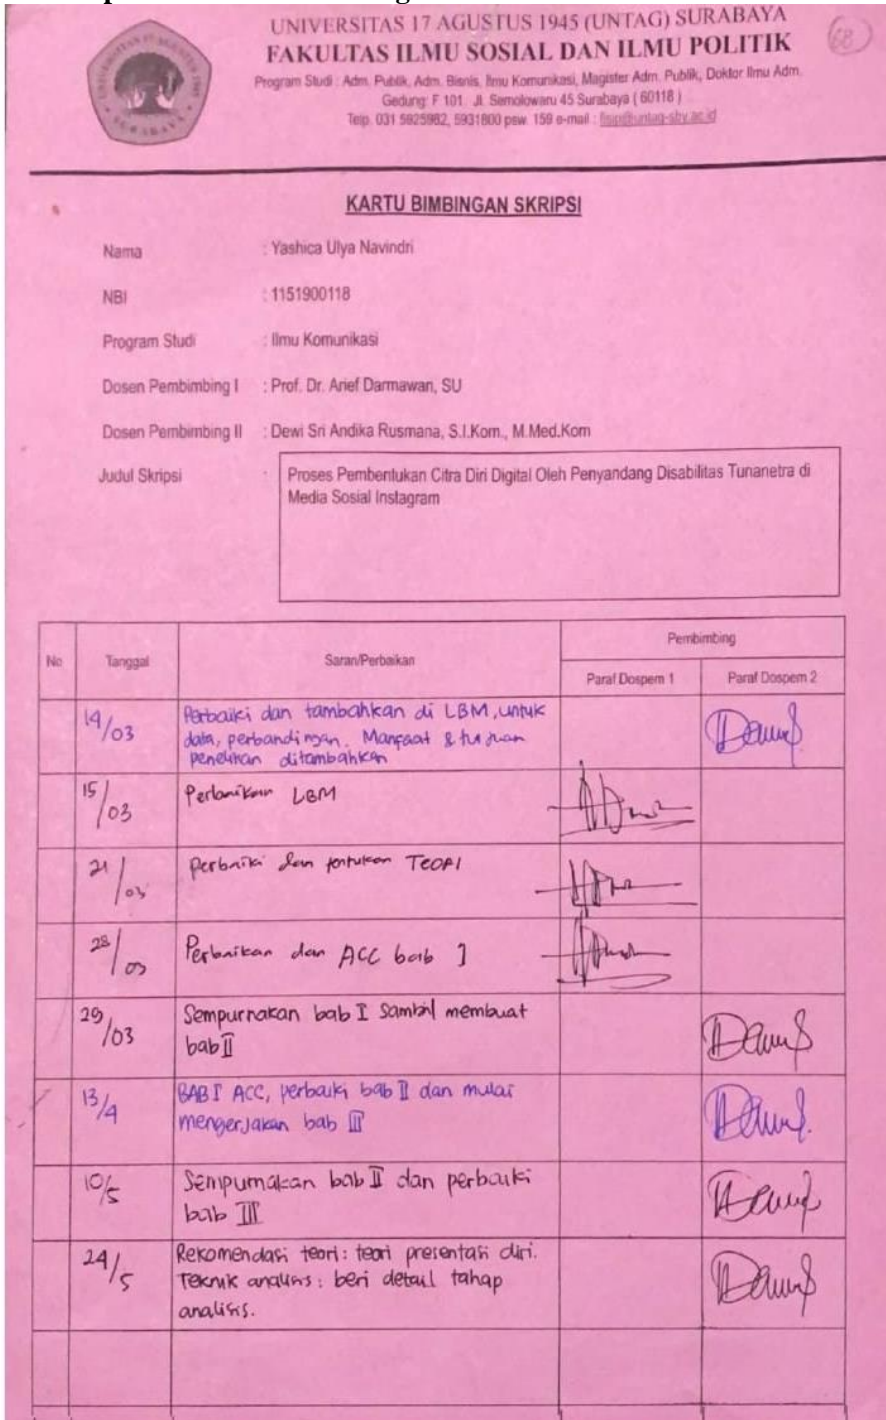 UNIVERSITAS 17 AGUSTUS 1945 (UNTAG) SURABAYA
FAKULTAS ILMU SOSIAL DAN ILMU POLITIK
Program Studi : Adm. Publik, Adm. Bisnis, Ilmu Komunikasi, Magister Adm. Publik, Doktor Ilmu Adm.
Gedung: F 101. Jl. Semolowaru 45 Surabaya ( 60118 )
Telp. 031 5925982, 5931800 psw. 159 e-mail : fisip@untag-sby.ac.id
68
SURABAYA
KARTU BIMBINGAN SKRIPSI
Nama : Yashica Ulya Navindri
NBI : 1151900118
Program Studi : Ilmu Komunikasi
Dosen Pembimbing I : Prof. Dr. Arief Darmawan, SU
Dosen Pembimbing II : Dewi Sri Andika Rusmana, S.I.Kom., M.Med.Kom
Judul Skripsi : Proses Pembentukan Citra Diri Digital Oleh Penyandang Disabilitas Tunanetra di
Media Sosial Instagram
No Tanggal Saran/Perbaikan Pembimbing
Paraf Dospem 1 Paraf Dospem 2
14/03 Perbaiki dan tambahkan di LBM, untuk
data, perbandingan. Manfaat & tujuan
penelitian ditambahkan
15/03 Perbaikan LBM
21/03 Perbaiki dan TEORI
28/03 Perbaikan dan ACC bab I
29/03 Sempurnakan bab I sambil membuat
bab II
13/4 BAB I ACC, perbaiki bab II dan mulai
mengerjakan bab III
10/5 Sempurnakan bab II dan perbaiki
bab III
24/5 Rekomendasi teori: teori presentasi diri.
Teknik analisis: beri detail tahap
analisis.